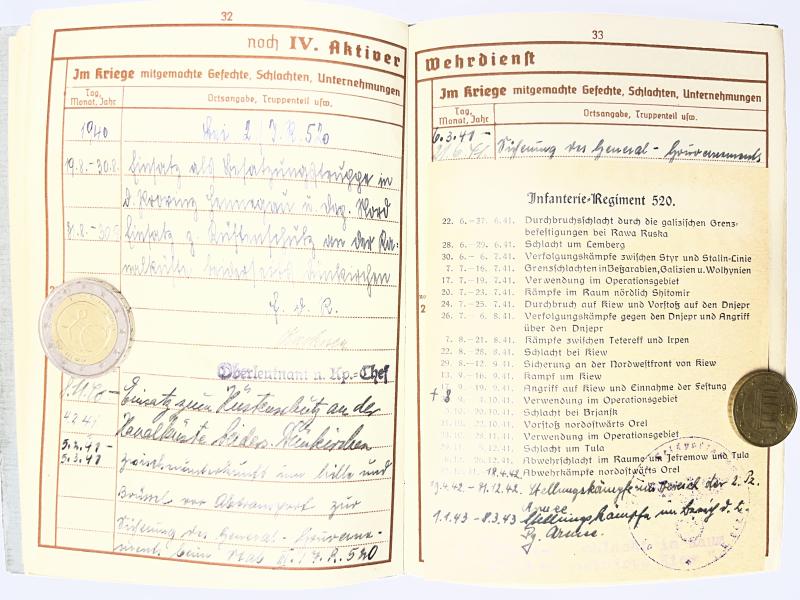 32
noch IV. Aktiver
Im Kriege mitgemachte Gefechte, Schlachten, Unternehmungen
Tag, Monat, Jahr
Ortsangabe, Truppenteil usw.
1940
bei 2./ I.R. 520
19.8.-30.8. Einsatz als Besatzungstruppe in
d. Provinz Hennegau u. Dep. Nord
31.8.- Einsatz z. Küstenschutz an der Ka-
nalküste beiderseits Dünkirchen
f. d. R.
Oberleutnant u. Kp.-Chef
Einsatz zum Küstenschutz an der
Kanalküste beiders. Dünkirchen
5.2.41 -
5.3.41 Zwischenunterkunft um Lille und
Brüssel vor Abtransport zur
Sicherung des General-Gouverne-
ments beim Stab I.R. 520
33
Wehrdienst
Im Kriege mitgemachte Gefechte, Schlachten, Unternehmungen
Tag, Monat, Jahr
Ortsangabe, Truppenteil usw.
6.3.41 -
21.6.41 Sicherung des General-Gouvernements
Infanterie-Regiment 520.
22. 6.-27. 6.41. Durchbruchsschlacht durch die galizischen Grenz-
befestigungen bei Rawa Ruska
28. 6.-29. 6.41 Schlacht um Lemberg
30. 6.- 6. 7.41 Verfolgungskämpfe zwischen Styr und Stalin-Linie
7. 7.-16. 7.41. Grenzschlachten in Beßarabien, Galizien u. Wolhynien
17. 7.-19. 7.41 Verwendung im Operationsgebiet
20. 7.-23. 7.41 Kämpfe im Raum nördlich Shitomir
24. 7.-25. 7.41 Durchbruch auf Kiew und Vorstoß auf den Dnjepr
26. 7.- 6. 7.41 Verfolgungskämpfe gegen den Dnjepr und Angriff
über den Dnjepr
7. 8.-21. 8.41 Kämpfe zwischen Tetereff und Irpen
22. 8.-28. 8.41 Schlacht bei Kiew
29. 8.-12. 9.41 Sicherung an der Nordwestfront von Kiew
13. 9.-16. 9.41 Kampf um Kiew
9.-19. 9.41 Angriff auf Kiew und Einnahme der Festung
+ 8 4.10.41 Verwendung im Operationsgebiet
Schlacht bei Brjansk
Vorstoß nordostwärts Orel
11.41 Verwendung im Operationsgebiet
Schlacht um Tula
Abwehrschlacht im Raume um Jefremow und Tula
18.4.42 Abwehrkämpfe nordostwärts Orel
19.4.42 - 31.12.42. Stellungskämpfe im Bereich der 2. Pz.
Armee
1.1.43 - 8.3.43 Stellungskämpfe im Bereich d. 2.
Pz. Armee.